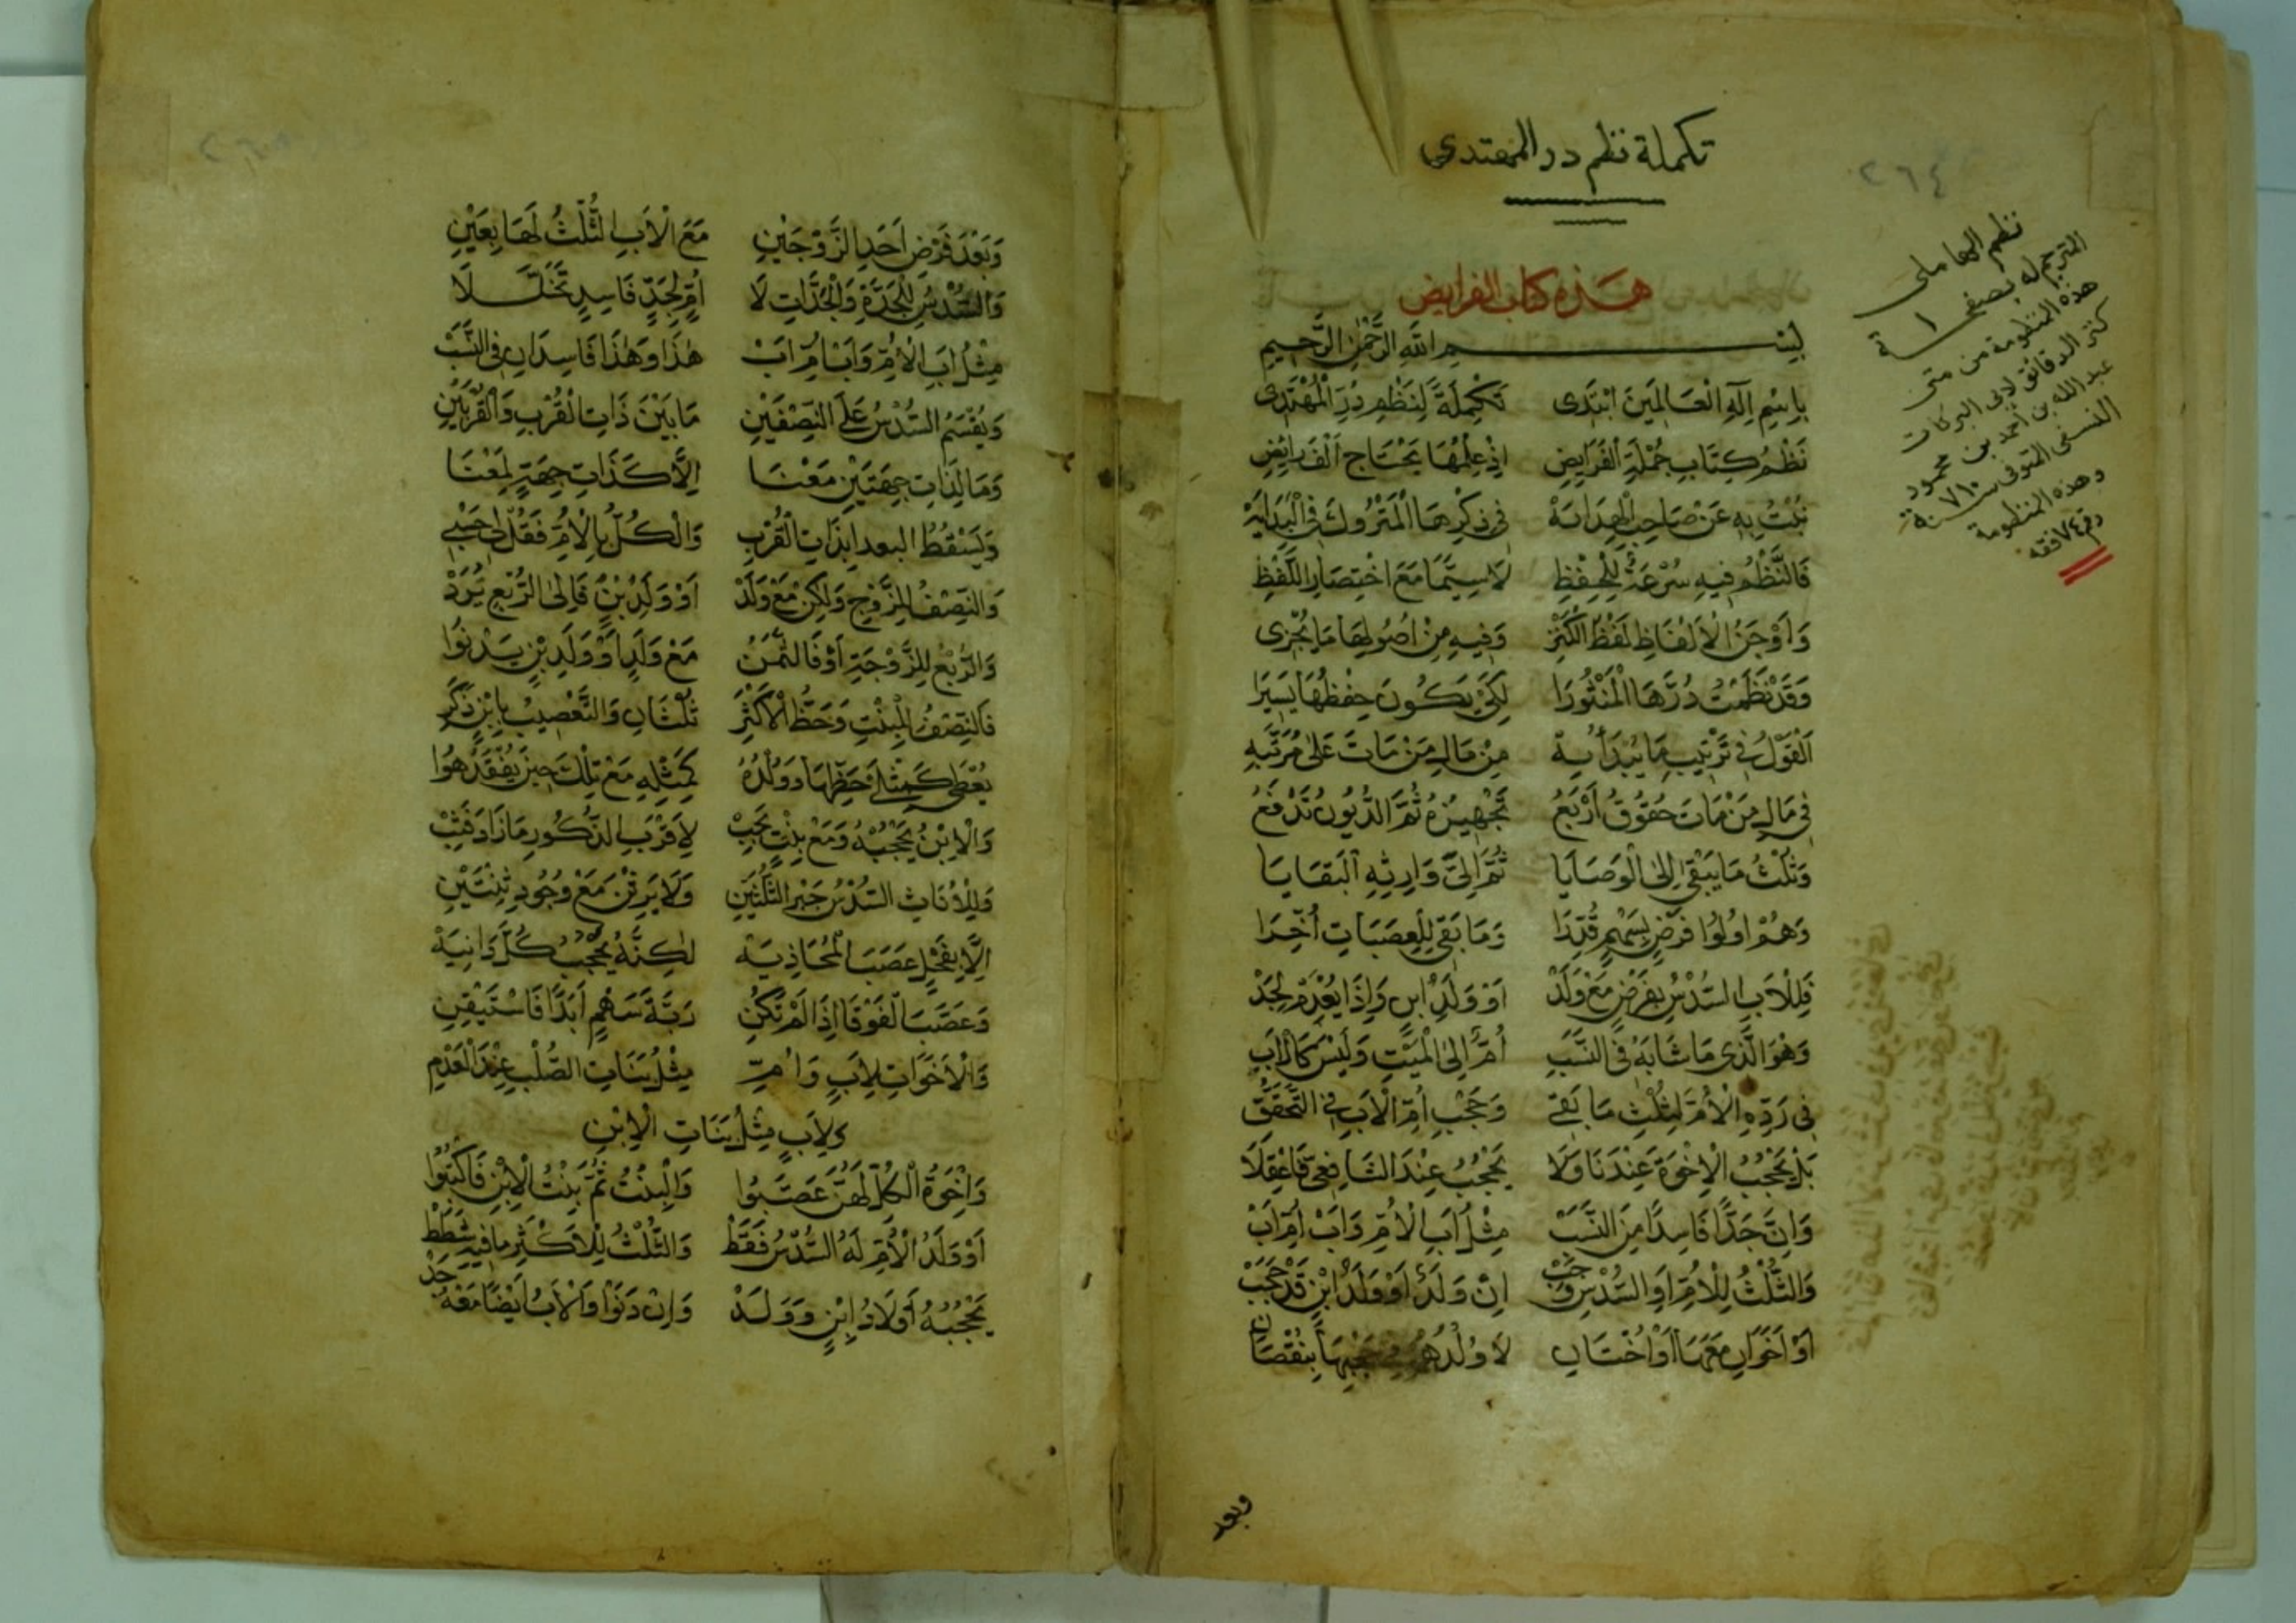 تكملة نظم در المهتدى
٢٦٤
نظم الهاملى
المترجم له بصفحة ١
هذه المنظومة من متن
كنز الدقائق لابى البركات
عبد الله بن أحمد بن محمود
النسفى المتوفى سنة ٧١٠
وهذه المنظومة
رقم ٧٤ فقه
هذه كتاب الفرايض
بِسْمِ اللهِ الرَّحْمٰنِ الرَّحِيمِ
بِاسْمِ اِلٰهِ الْعَالَمِينَ ابْتَدِى تَكْمِلَةً لِنَظْمِ دُرِّ الْمُهْتَدِى
نَظْمُ كِتَابِ جُمْلَةِ الْفَرَايِضِ اِذْ عِلْمُهَا يَحْتَاج اَلْفَ رَائِضِ
نُبْتُ بِهِ عَنْ صَاحِبِ الْهِدَايَةْ فِى ذِكْرِهَا الْمَتْرُوكَ فِى الْبِدَايَةْ
فَالنَّظْمُ فِيهِ سُرْعَةٌ لِلْحِفْظِ لَا سِيَّمَا مَعَ اخْتِصَارِ اللَّفْظِ
وَاَوْجَزُ الْاَلْفَاظِ لَفْظُ الْكَنْزِ وَفِيهِ مِنْ اُصُولِهَا مَا يُجْزِى
وَقَدْ نَظَمْتُ دُرَّهَا الْمَنْثُورَا لِكَىْ يَكُونَ حِفْظُهَا يَسِيرَا
اَلْقَوْلُ فِى تَرْتِيبِ مَا يُبْدَأُ بِهْ مِنْ مَالِ مَنْ مَاتَ عَلٰى مُرَتَّبِهِ
فِى مَالِ مَنْ مَاتَ حُقُوقٌ اَرْبَعُ تَجْهِيزُهُ ثُمَّ الدُّيُونُ تُدْفَعُ
وَثُلْثُ مَا يَبْقٰى اِلَى الْوَصَايَا ثُمَّ اِلٰى وَارِثِهِ الْبَقَايَا
وَهُمْ اُولُوا فَرْضٍ بِسَهْمٍ قُدِّرَا وَمَا بَقِى لِلْعَصَبَاتِ اُخِّرَا
فَلِلْاَبِ السُّدْسُ بِفَرْضٍ مَعْ وَلَدْ اَوْ وَلَدِ ابْنٍ وَاِذَا يُعْدَمْ لِجَدّْ
وَهُوَ الَّذِى مَا شَابَهُ فِى النَّسَبِ اُمٌّ اِلَى الْمَيْتِ وَلَيْسَ كَالْاَبِ
فِى رَدِّهِ الْاُمَّ لِثُلْثِ مَا بَقِى وَحَجْبِ اُمِّ الْاَبِ فِى التَّحَقُّقِ
بَلْ يَحْجُبُ الْاِخْوَةَ عِنْدَنَا وَلَا يَحْجُبُ عِنْدَ الشَّافِعِى فَاعْقِلَا
وَاِنَّ جَدًّا فَاسِدًا مِنَ النَّسَبْ مِثْلُ اَبِ الْاُمِّ وَاَبْ اُمِّ ابْ
وَالثُّلْثُ لِلْاُمِّ اَوِ السُّدْسُ وَجَبْ اِنْ وَلَدٌ اَوْ وَلَدُ ابْنٍ قَدْ حَجَبْ
اَوْ اَخَوَانِ مَعَهَا اَوْ اُخْتَانِ لَا وُلْدُهُمْ حَجْبِهَا بِنُقْصَانِ
وبعد
وَبَعْدَ فَرْضِ اَحَدِ الزَّوْجَيْنِ مَعَ الْاَبِ الثُّلْثُ لَهَا بِعَيْنِ
وَالسُّدْسُ لِلْجَدَّةِ وَالْجَدَّاتِ لَا اُمٌّ لِجَدٍّ فَاسِدٍ تَخَلَّلَا
مِثْلُ اَبِ الْاُمِّ وَاَبْ اُمِّ ابْ هٰذَا وَهٰذَا فَاسِدَانِ فِى النَّسَبْ
وَيُقْسَمُ السُّدْسُ عَلَى النِّصْفَيْنِ مَا بَيْنَ ذَاتِ الْقُرْبِ وَالْقُرْبَيْنِ
وَمَا لِذَاتِ جِهَتَيْنِ مَعْنَا اِلَّا كَذَاتِ جِهَةٍ لِمَعْنَا
وَيَسْقُطُ البعد بِذَاتِ الْقُرْبِ وَالْكُلُّ بِالْاُمِّ فَقُلْ لِى حَسْبِى
وَالنِّصْفُ لِلزَّوْجِ وَلٰكِنْ مَعْ وَلَدْ اَوْ وَلَدِ ابْنٍ فَاِلَى الرُّبْعِ يُرَدّْ
وَالرُّبْعُ لِلزَّوْجَةِ اَوْ فَالثُّمْنُ مَعْ وَلَدٍ اَوْ وَلَدِ ابْنٍ يَدْنُوا
فَالنِّصْفُ لِلْبِنْتِ وَحَظُّ الْاَكْثَرِ ثُلْثَانِ وَالتَّعْصِيبُ بِابْنٍ ذَكَرِ
يُعْطٰى كَمِثْلَىْ حَظِّهَا وَوُلْدُهُ كَمِثْلِهِ مَعْ تِلْكَ حِينَ يُفْقَدُ هُوَا
وَالْاِبْنُ يَحْجُبُهْ وَمَعْ بِنْتٍ يَجِبْ لِاَقْرَبِ الذُّكُورِ مَا زَادَ فَثِبْ
وَلِلْاُنَاثِ السُّدْسُ جَبْرَ الثُّلْثَيْنِ وَلَا يَرِثْنَ مَعْ وُجُودِ ثِنْتَيْنِ
اِلَّا بِفَحْلٍ عَصَبَ الْمُحَاذِيَهْ لٰكِنَّهُ يَحْجُبُ كُلَّ دَانِيَهْ
وَعَصَبَ الْفَوْقَا اِذَا لَمْ تَكُنْ رَبَّةَ سَهْمٍ اَبَدًا فَاسْتَيْقِنِ
وَالْاَخَوَاتُ لِاَبٍ وَاُمِّ مِثْلُ بَنَاتِ الصُّلْبِ عِنْدَ الْعَدْمِ
وَلِاَبٍ مِثْلُ بَنَاتِ الْاِبْنِ
وَاِخْوَةُ الْكُلِّ لَهُنَّ عَصَّبُوا وَالْبِنْتُ ثُمَّ بِنْتُ الْاِبْنِ فَاكْتُبُوا
اَوْ وَلَدُ الْاُمِّ لَهُ السُّدْسُ فَقَطْ وَالثُّلْثُ لِلْاَكْثَرِ مَا فِيهِ شَطَطْ
يَحْجُبُهُ اَوْلَادُ اِبْنٍ وَوَلَدْ وَاِنْ دَنَوْا وَالْاَبُ اَيْضًا مَعْهُ جَدّْ